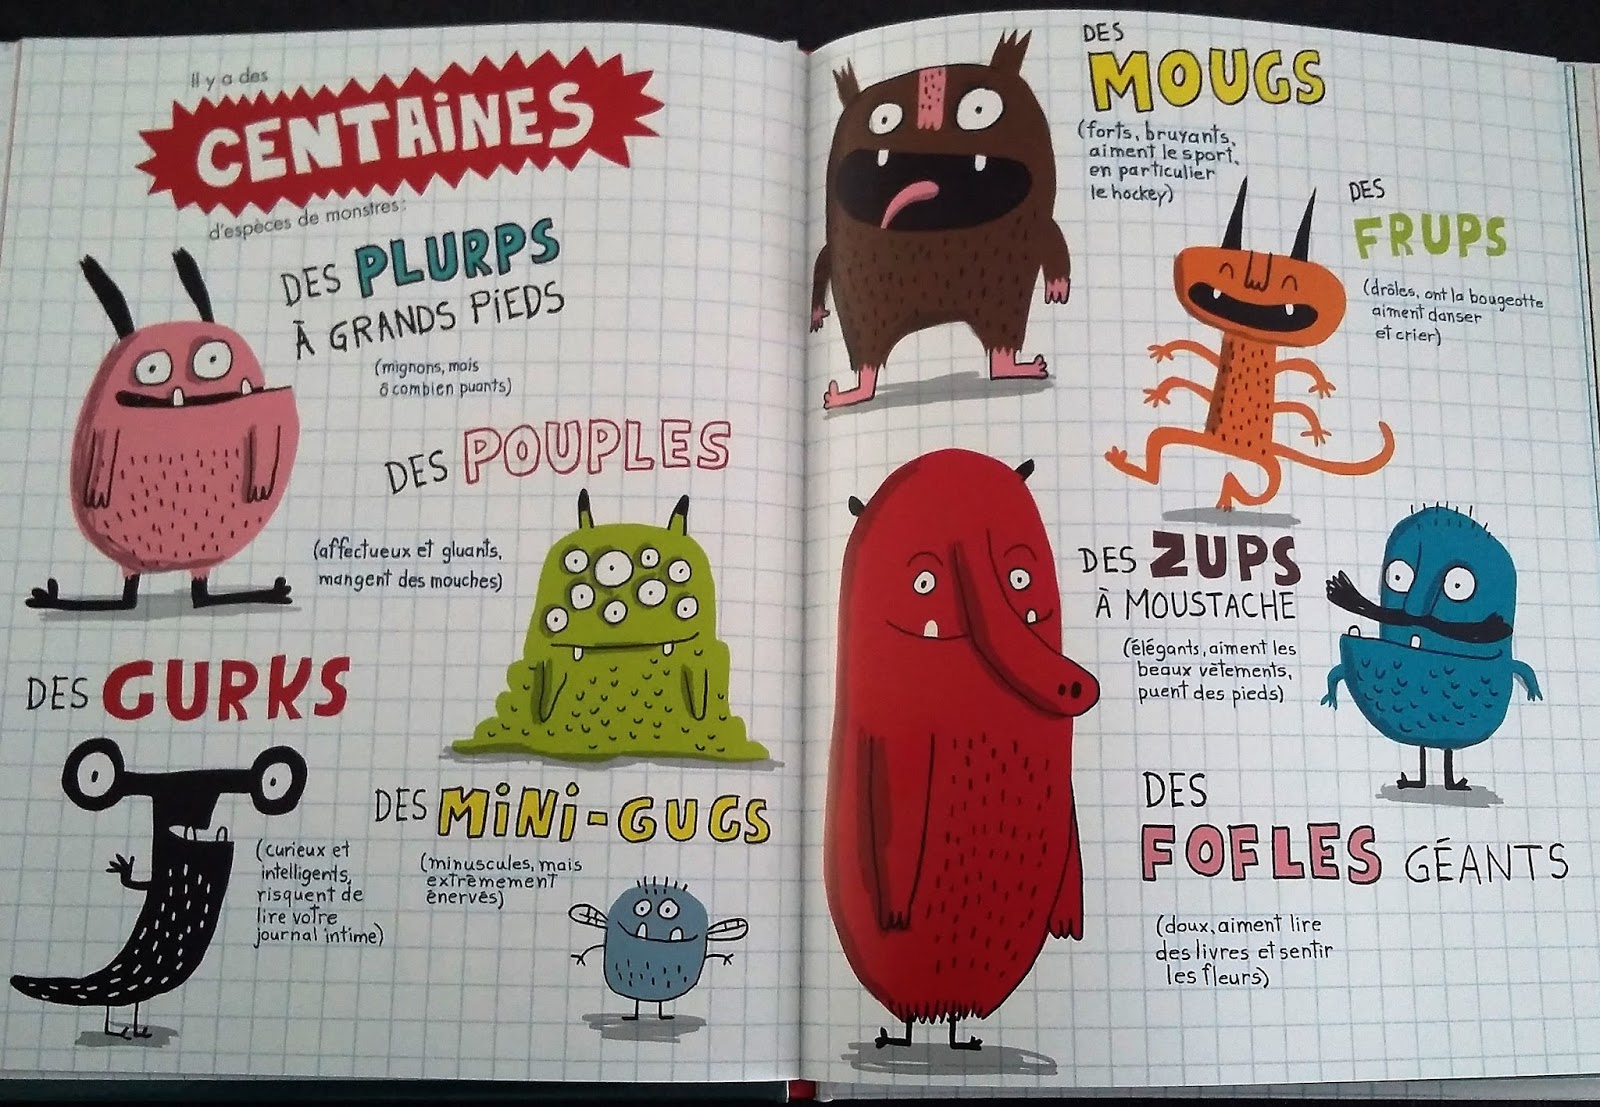 Il y a des
CENTAINES
d'espèces de monstres:
DES PLURPS
À GRANDS PIEDS
(mignons, mais
ô combien puants)
DES POUPLES
(affectueux et gluants,
mangent des mouches)
DES GURKS
(curieux et
intelligents,
risquent de
lire votre
journal intime)
DES MiNi-GUGS
(minuscules, mais
extrêmement
énervés)
DES
MOUGS
(forts, bruyants,
aiment le sport,
en particulier
le hockey)
DES
FRUPS
(drôles, ont la bougeotte
aiment danser
et crier)
DES ZUPS
À MOUSTACHE
(élégants, aiment les
beaux vêtements,
puent des pieds)
DES
FOFLES GÉANTS
(doux, aiment lire
des livres et sentir
les fleurs)